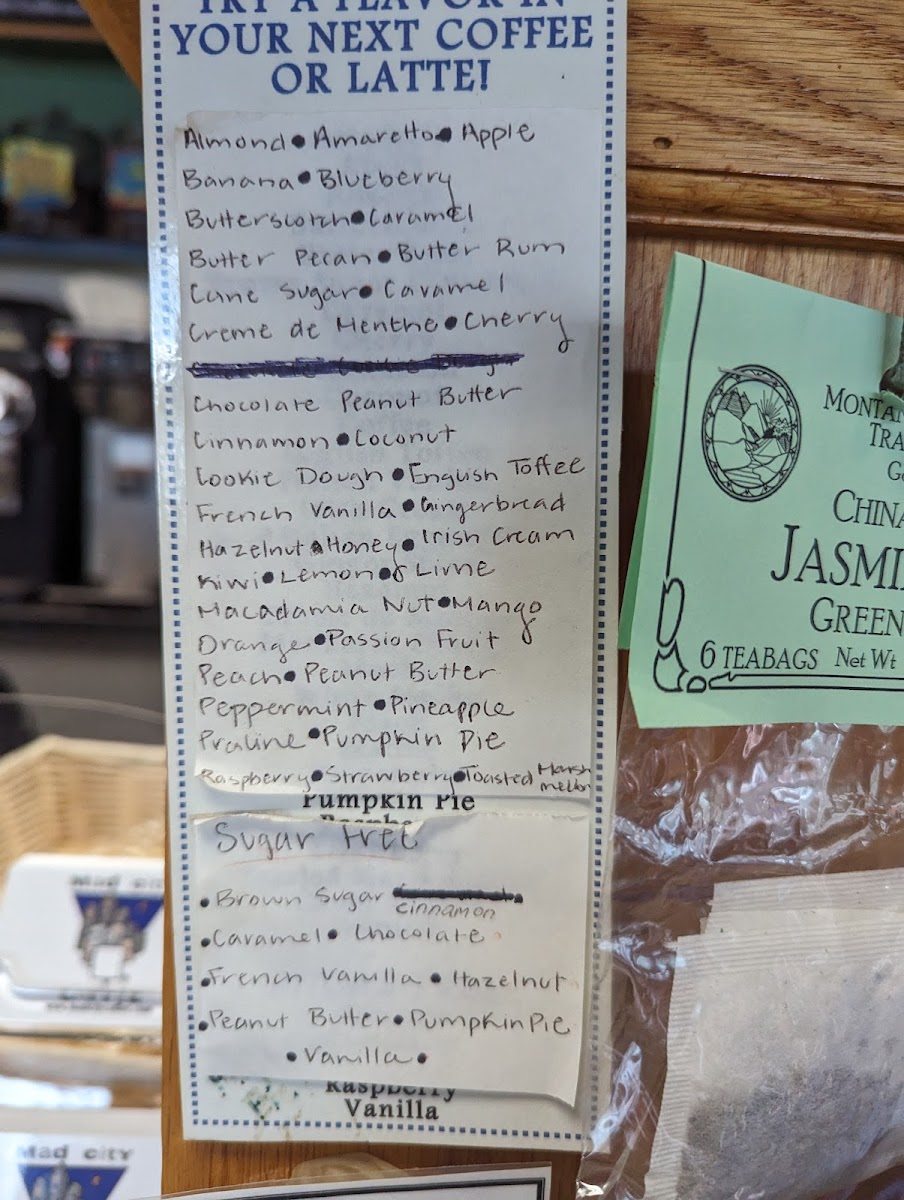 TRY A FLAVOR IN
YOUR NEXT COFFEE
OR LATTE!
Almond • Amaretto • Apple
Banana • Blueberry
Butterscotch • Caramel
Butter Pecan • Butter Rum
Cane Sugar • Caramel
Creme de Menthe • Cherry
Chocolate Peanut Butter
Cinnamon • Coconut
Cookie Dough • English Toffee
French Vanilla • Gingerbread
Hazelnut • Honey • Irish Cream
Kiwi • Lemon • Lime
Macadamia Nut • Mango
Orange • Passion Fruit
Peach • Peanut Butter
Peppermint • Pineapple
Praline • Pumpkin Pie
Raspberry • Strawberry • Toasted Marsh
mellow
Pumpkin Pie
Sugar Free
• Brown Sugar
cinnamon
• Caramel • Chocolate
• French Vanilla • Hazelnut
• Peanut Butter • Pumpkin Pie
• Vanilla •
Raspberry
Vanilla
CHINA
JASMI
GREEN
6 TEABAGS Net Wt
Mad City
Mad City